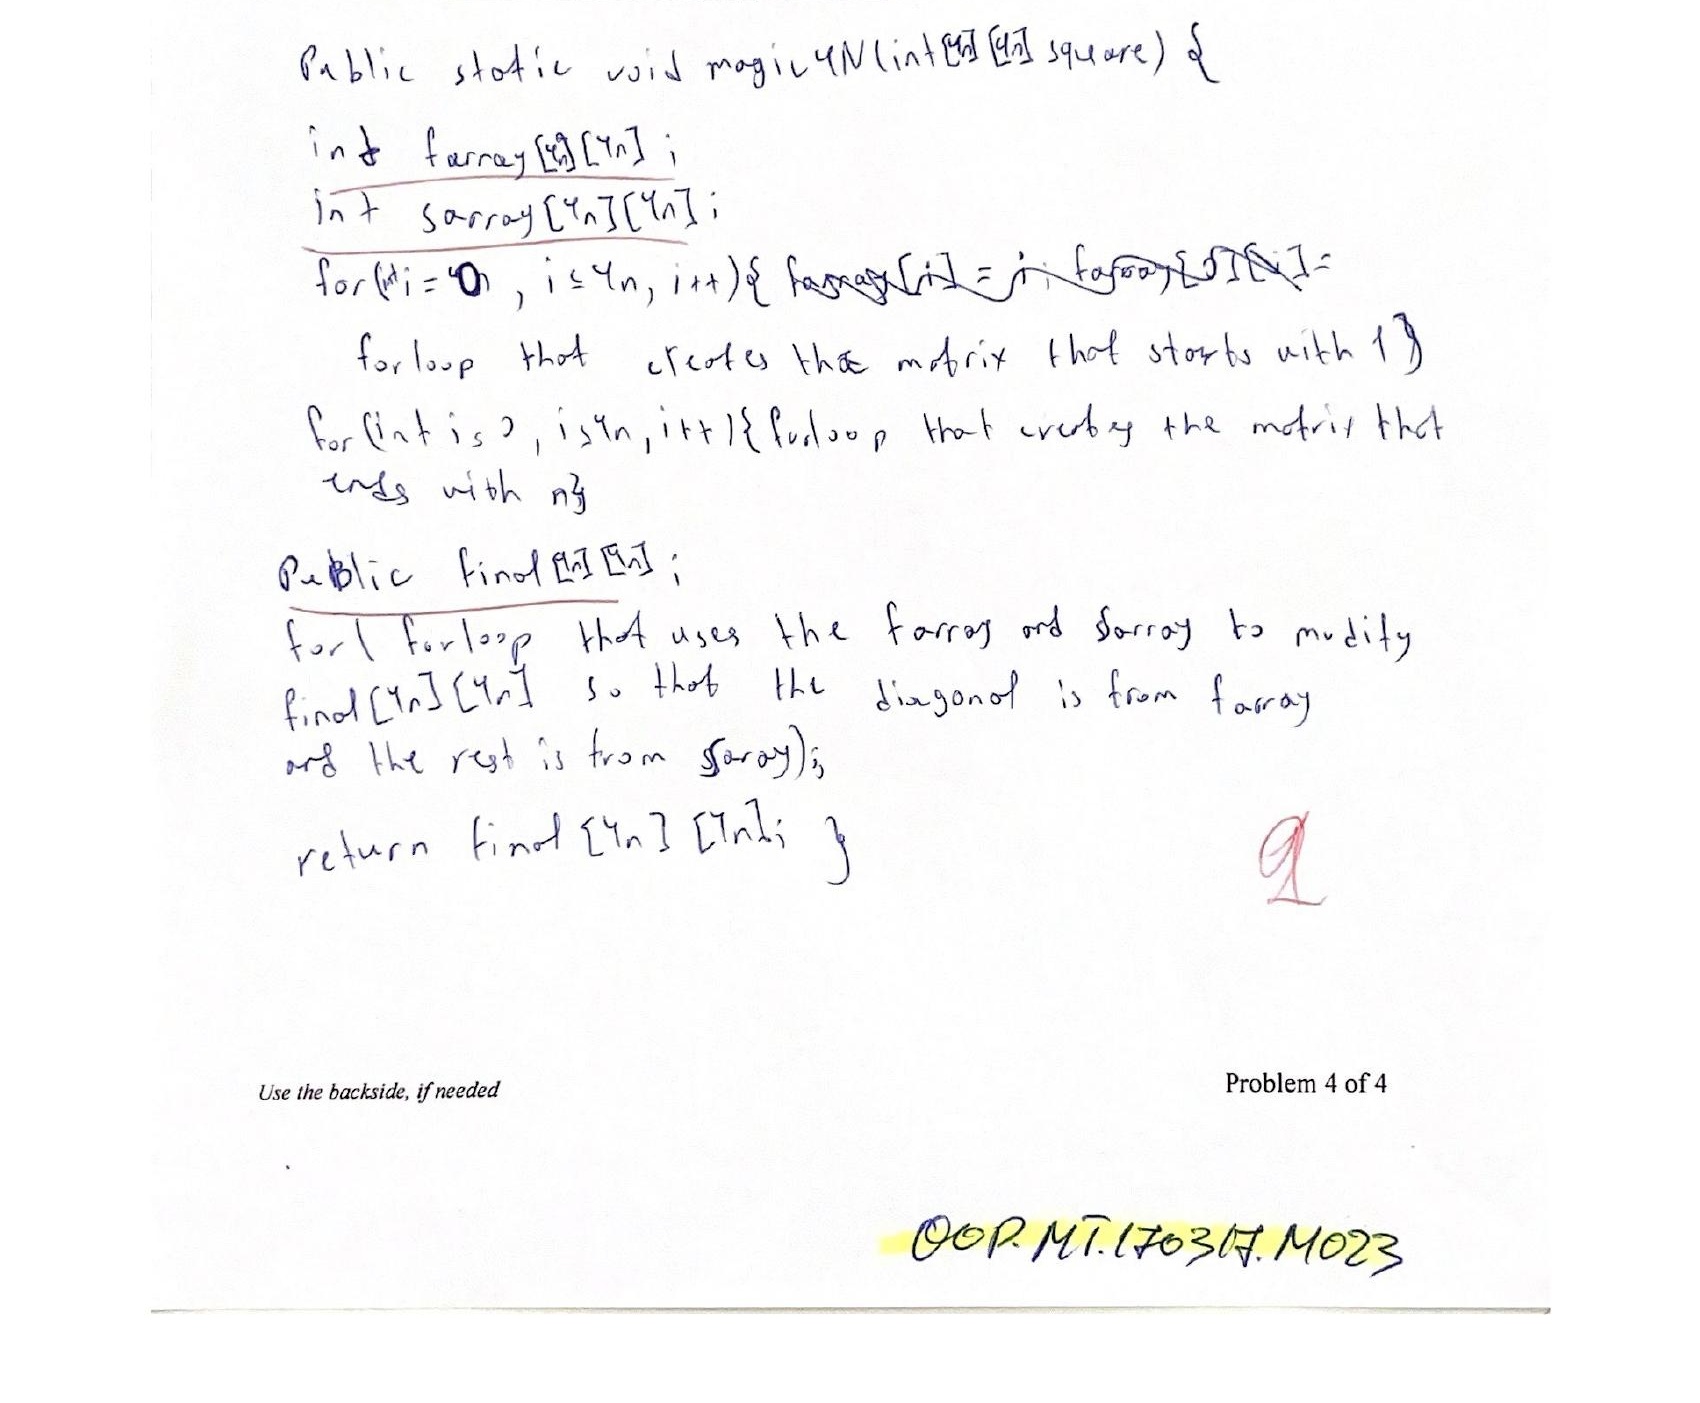 Public static void magic4N(int[4n][4n] square) {
int farray[4n][4n];
int sarray[4n][4n];
for(int i = 0, i≤4n, i++){ farray[i] = i; farray[j][i]=
for loop that creates the matrix that starts with 1}
for(int i=0, i≤4n, i++){forloop that creates the matrix that
ends with n}
Public final[4n][4n];
for( forloop that uses the farray and sarray to modify
final[4n][4n] so that the diagonal is from farray
and the rest is from sarray);
return final [4n] [4n]; }
Use the backside, if needed
Problem 4 of 4
OOP.MT.170317.M023